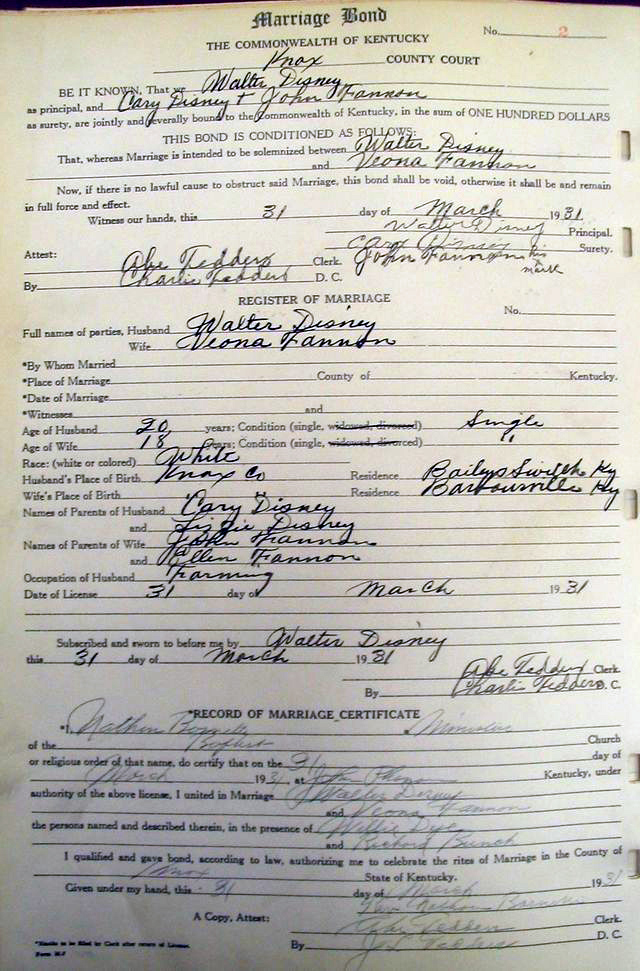 Marriage Bond
No. 2
THE COMMONWEALTH OF KENTUCKY
Knox COUNTY COURT
BE IT KNOWN, That we Walter Disney
as principal, and Cary Disney + John Fannon
as surety, are jointly and severally bound to the Commonwealth of Kentucky, in the sum of ONE HUNDRED DOLLARS
THIS BOND IS CONDITIONED AS FOLLOWS:
That, whereas Marriage is intended to be solemnized between Walter Disney
and Veona Fannon
Now, if there is no lawful cause to obstruct said Marriage, this bond shall be void, otherwise it shall be and remain
in full force and effect.
Witness our hands, this 31 day of March 1931.
Walter Disney Principal.
Cary Disney Surety.
Attest: Abe Tedders Clerk. John Fannon his mark
By Charlie Tedders D. C.
REGISTER OF MARRIAGE
No.
Full names of parties, Husband Walter Disney
Wife Veona Fannon
*By Whom Married
*Place of Marriage County of Kentucky.
*Date of Marriage
*Witnesses and
Age of Husband 20 years; Condition (single, widowed, divorced) Single
Age of Wife 18 years; Condition (single, widowed, divorced) "
Race: (white or colored) White
Husband's Place of Birth Knox Co Residence Baileys Switch Ky
Wife's Place of Birth Residence Barbourville Ky
Names of Parents of Husband Cary Disney
and Lizzie Disney
Names of Parents of Wife John Fannon
and Ellen Fannon
Occupation of Husband Farming
Date of License 31 day of March 1931
Subscribed and sworn to before me by Walter Disney
this 31 day of March 1931
Abe Tedders Clerk.
By Charlie Tedders D. C.
*RECORD OF MARRIAGE CERTIFICATE
*I, Nathan a Minister
of the Baptist Church
or religious order of that name, do certify that on the 31 day of
March 1931, at John Kentucky, under
authority of the above license, I united in Marriage Walter Disney
and Veona Fannon
the persons named and described therein, in the presence of Willie Dye
and Richard Bunch
I qualified and gave bond, according to law, authorizing me to celebrate the rites of Marriage in the County of
Knox State of Kentucky.
Given under my hand, this 31 day of March 1931
Nathan
A Copy, Attest: Abe Tedders Clerk.
By Tedders D. C.
*Blanks to be filled by Clerk after return of License.